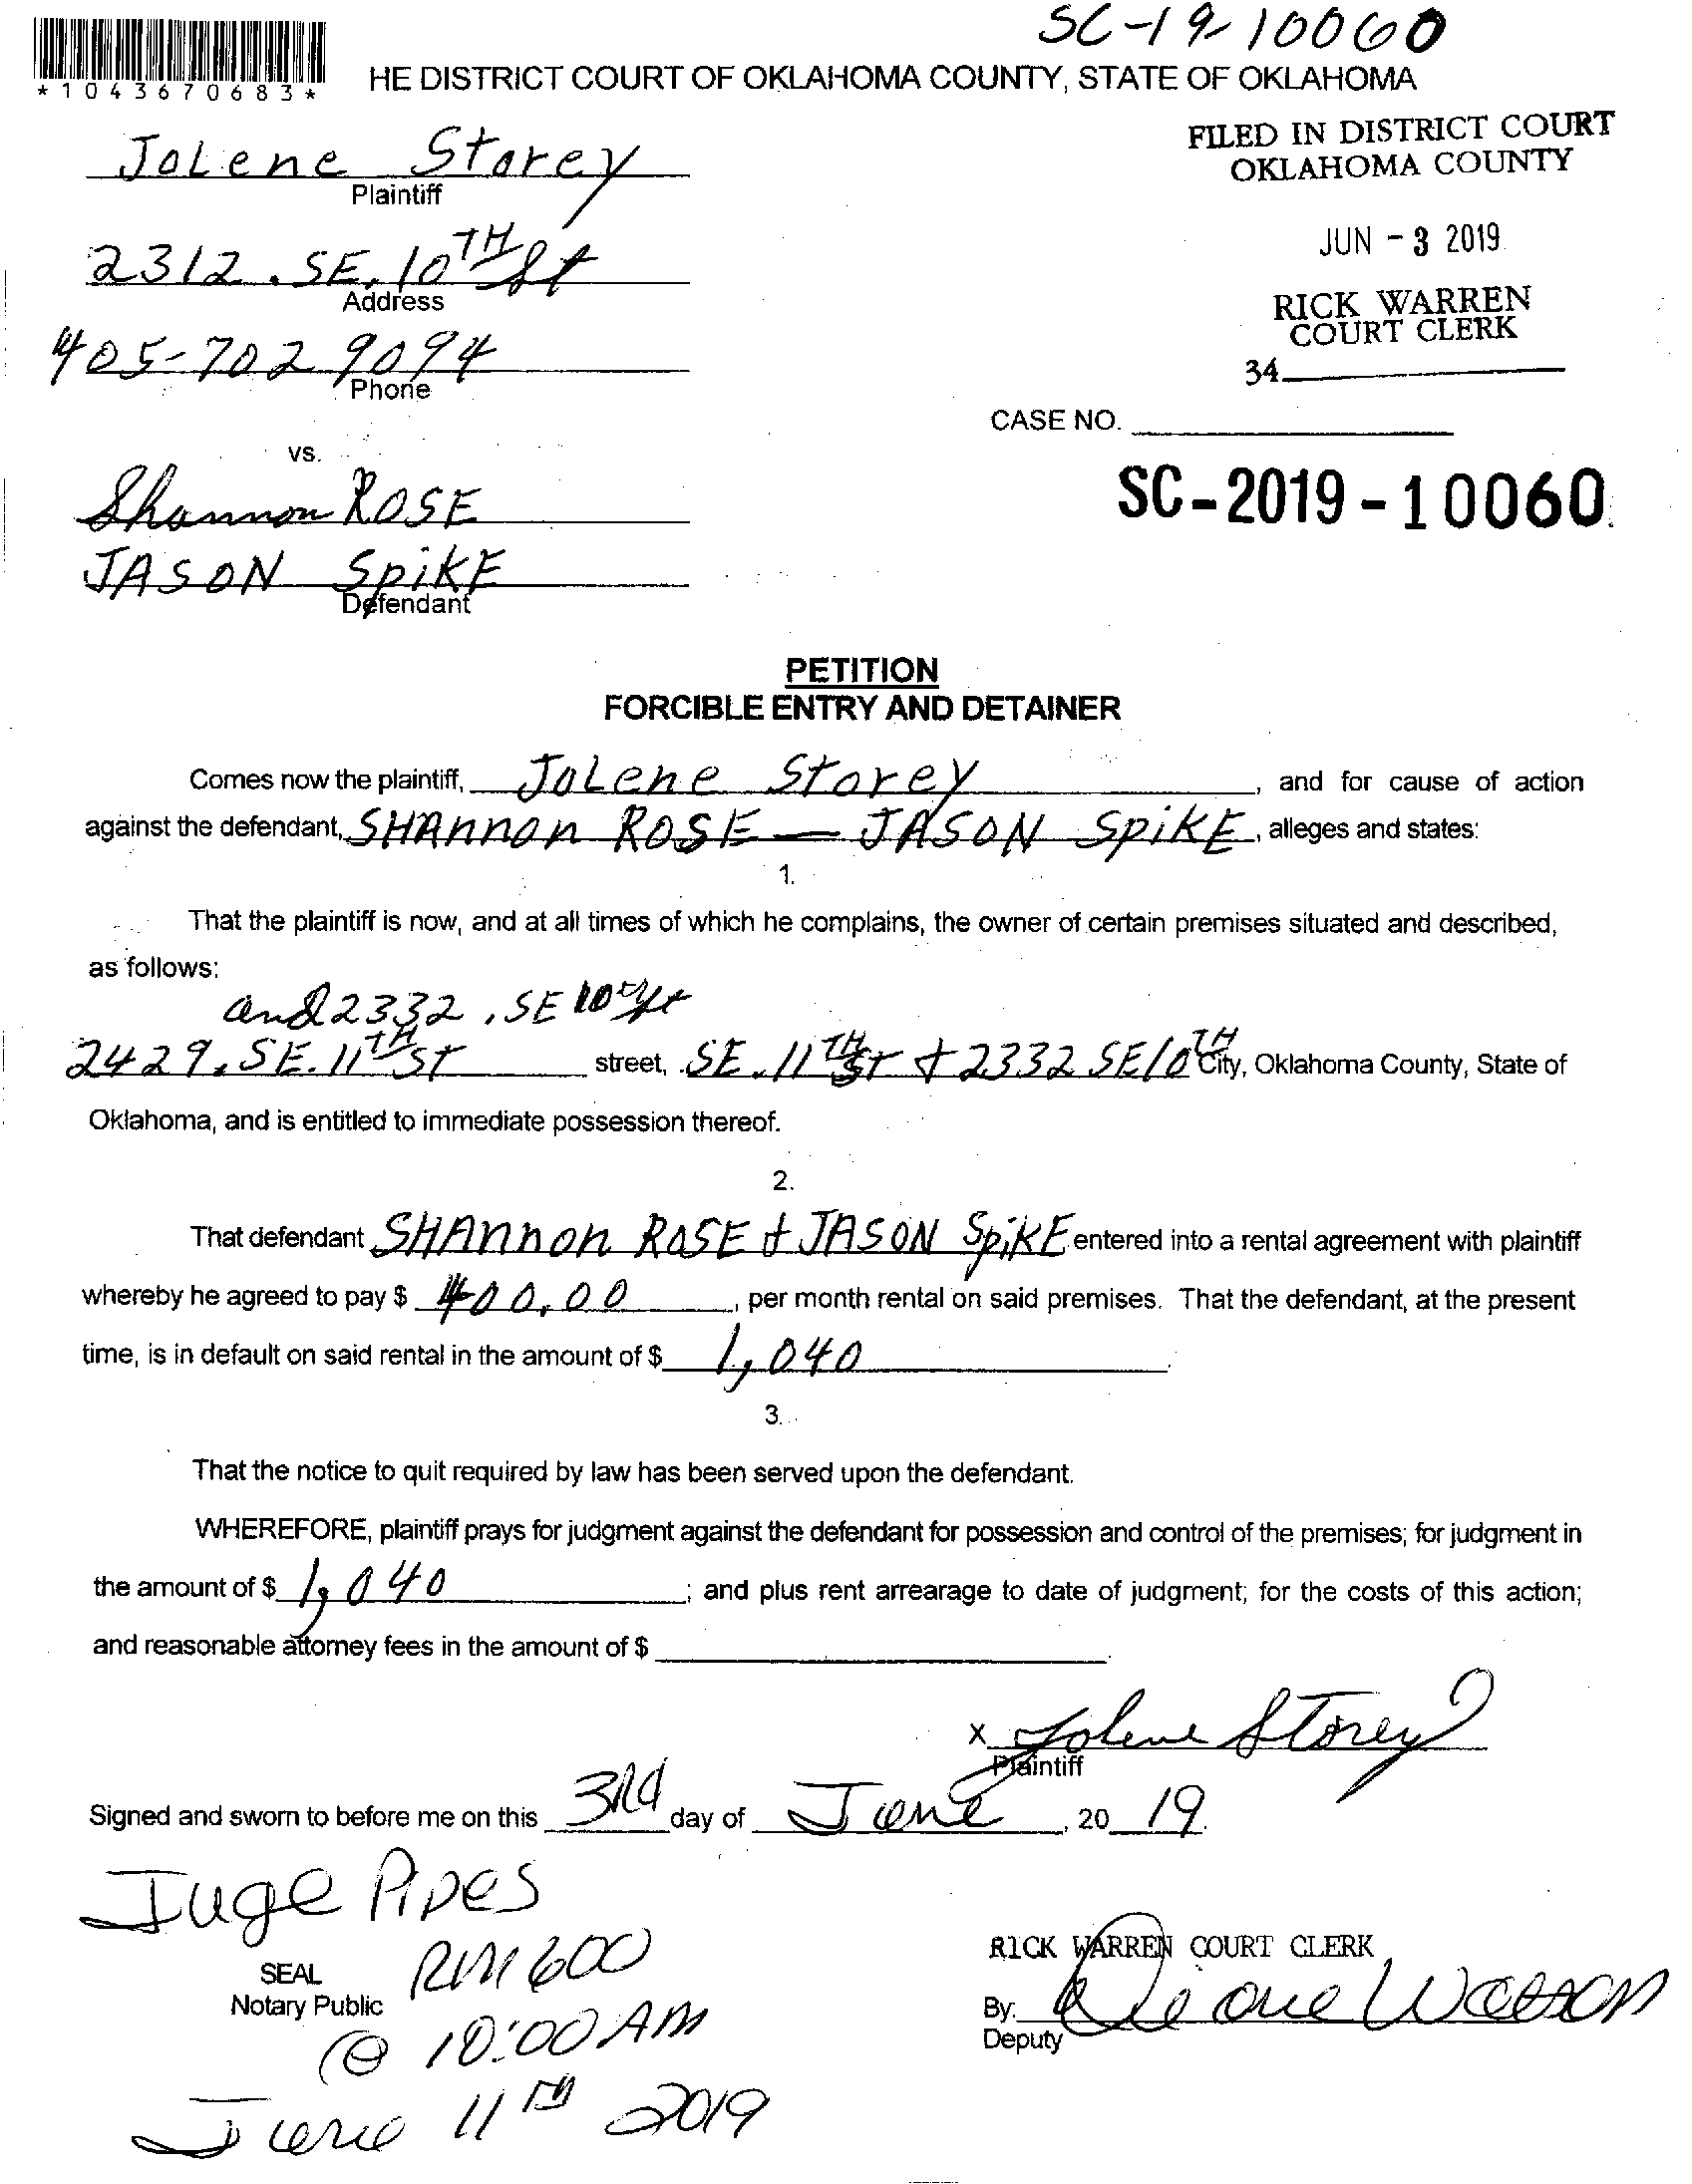 SC-19-10060
*1043670683*
HE DISTRICT COURT OF OKLAHOMA COUNTY, STATE OF OKLAHOMA
FILED IN DISTRICT COURT
OKLAHOMA COUNTY
JoLene Storey
Plaintiff
JUN - 3 2019
2312. SE. 10TH St
Address
RICK WARREN
COURT CLERK
405-702 9094
Phone
34
CASE NO.
vs.
Shannon ROSE
SC-2019-10060
JASON SpiKE
Defendant
PETITION
FORCIBLE ENTRY AND DETAINER
Comes now the plaintiff, JoLene Storey, and for cause of action
against the defendant, SHAnnon ROSE — JASON SpiKE, alleges and states:
1.
That the plaintiff is now, and at all times of which he complains, the owner of certain premises situated and described,
as follows:
and 2332 . SE 10th St
2429. SE. 11TH ST street, SE. 11TH ST + 2332 SE 10TH City, Oklahoma County, State of
Oklahoma, and is entitled to immediate possession thereof.
2.
That defendant SHAnnon ROSE + JASON SpiKE entered into a rental agreement with plaintiff
whereby he agreed to pay $ 400.00, per month rental on said premises. That the defendant, at the present
time, is in default on said rental in the amount of $ 1,040.
3.
That the notice to quit required by law has been served upon the defendant.
WHEREFORE, plaintiff prays for judgment against the defendant for possession and control of the premises; for judgment in
the amount of $ 1,040; and plus rent arrearage to date of judgment; for the costs of this action;
and reasonable attorney fees in the amount of $
X Jolene Storey
Plaintiff
Signed and sworn to before me on this 3rd day of June, 20 19.
Juge Pipes
RICK WARREN COURT CLERK
SEAL RM 600
Notary Public
By: Diane Watson
Deputy
@ 10:00 AM
June 11th 2019